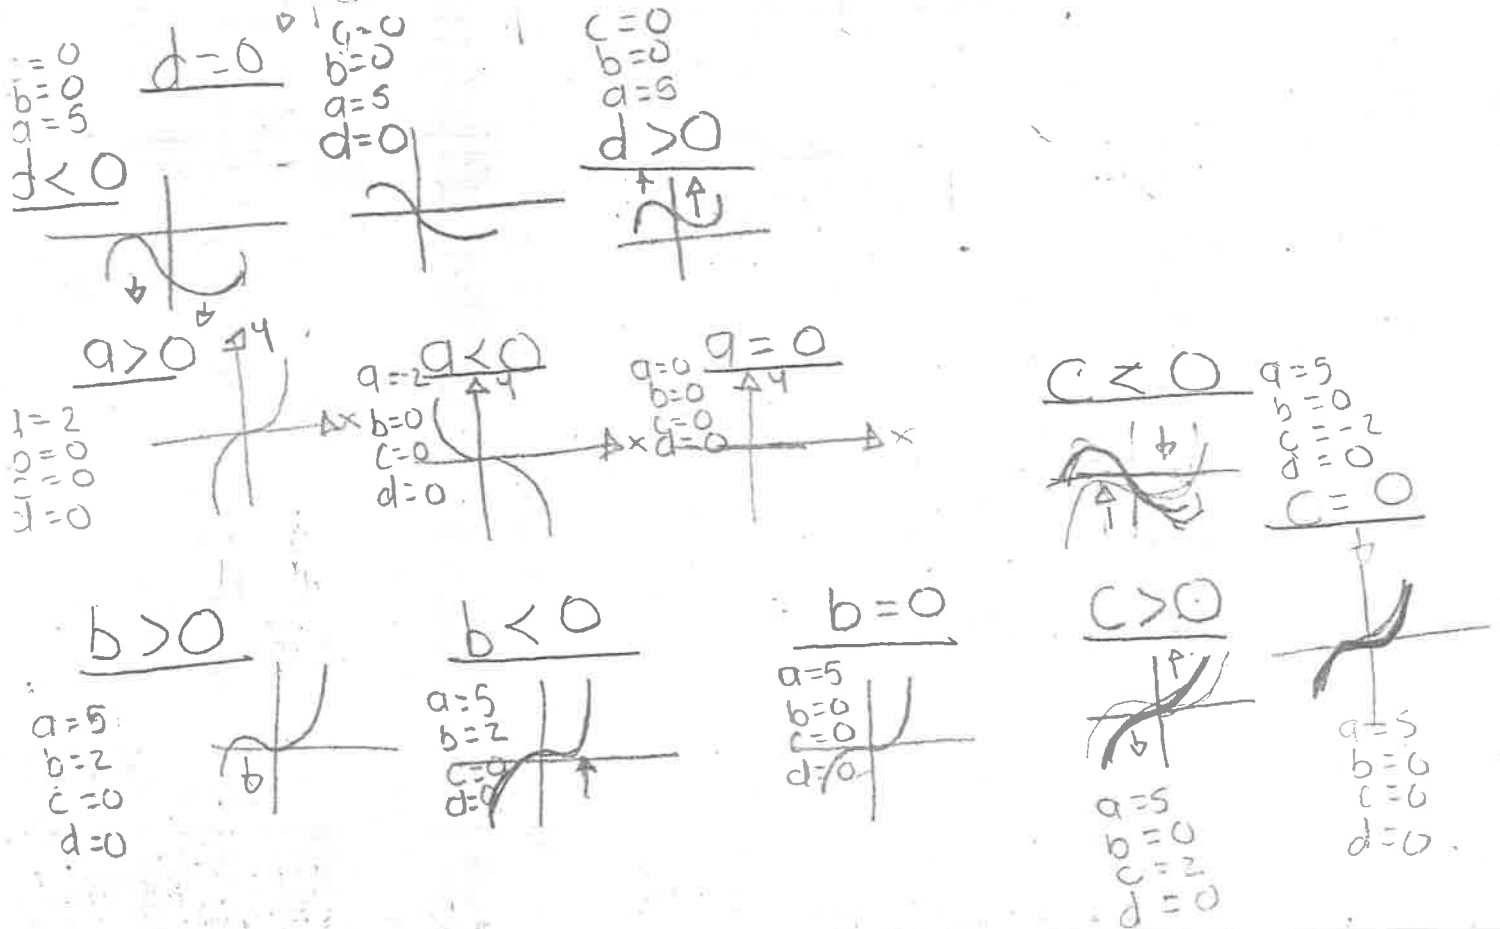 = 0
b=0
a=5
d< 0
d=0
c=0
b=0
a=5
d=0
c=0
b=0
a=5
d >0
a>0
y
x
=2
=0
=0
d=0
a<0
a=-2
y
b=0
c=0
x
d=0
a=0
a=0
b=0
y
c=0
d=0
x
c < 0
a=5
b=0
c=-2
d=0
c= 0
a=5
b=0
c=0
d=0
b >0
a=5
b=2
c=0
d=0
b< 0
a=5
b=2
c=0
d=0
b=0
a=5
b=0
c=0
d=0
c>0
a=5
b=0
c=2
d=0